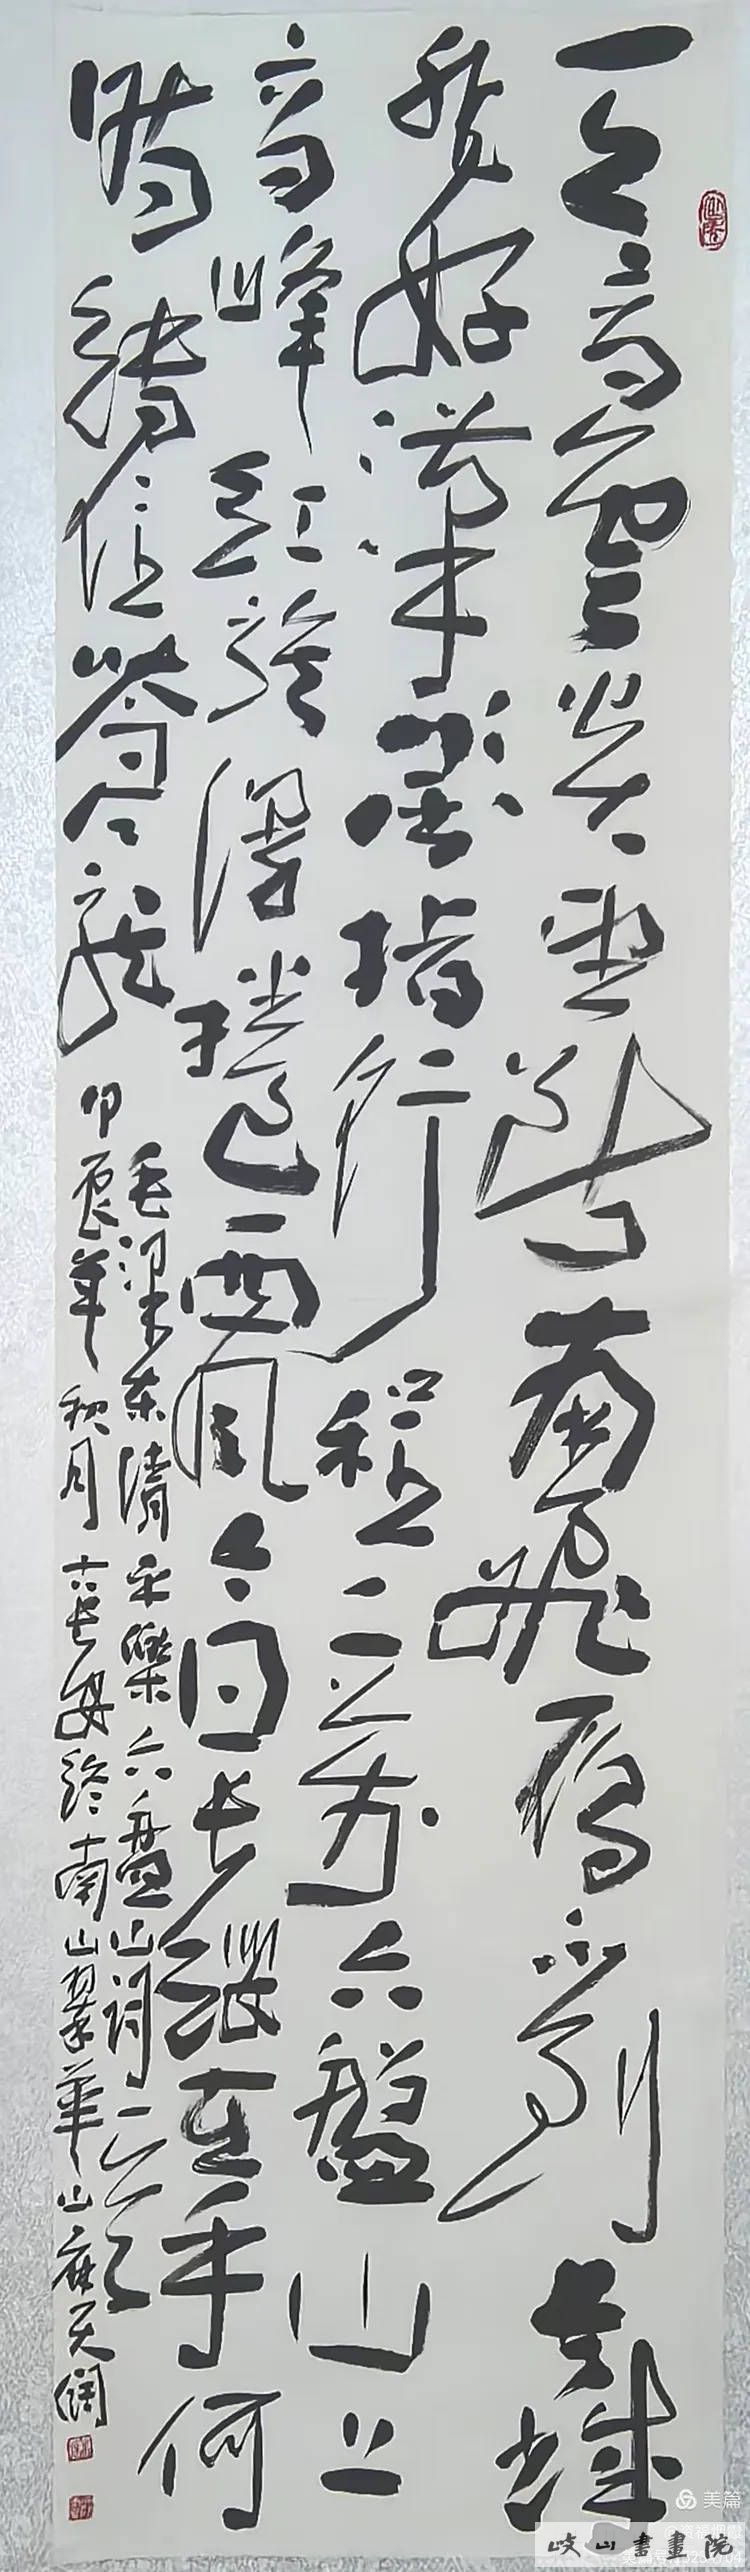 天高雲淡望斷南飛雁不到長城
非好漢屈指行程二万六盤山上
高峰紅旗漫捲西風今日長纓在手何
時縛住蒼龍
毛澤東清平樂六盤山詞一首
甲辰年秋月於長安終南山翠華山麻天闊
美篇
岐山書畫院